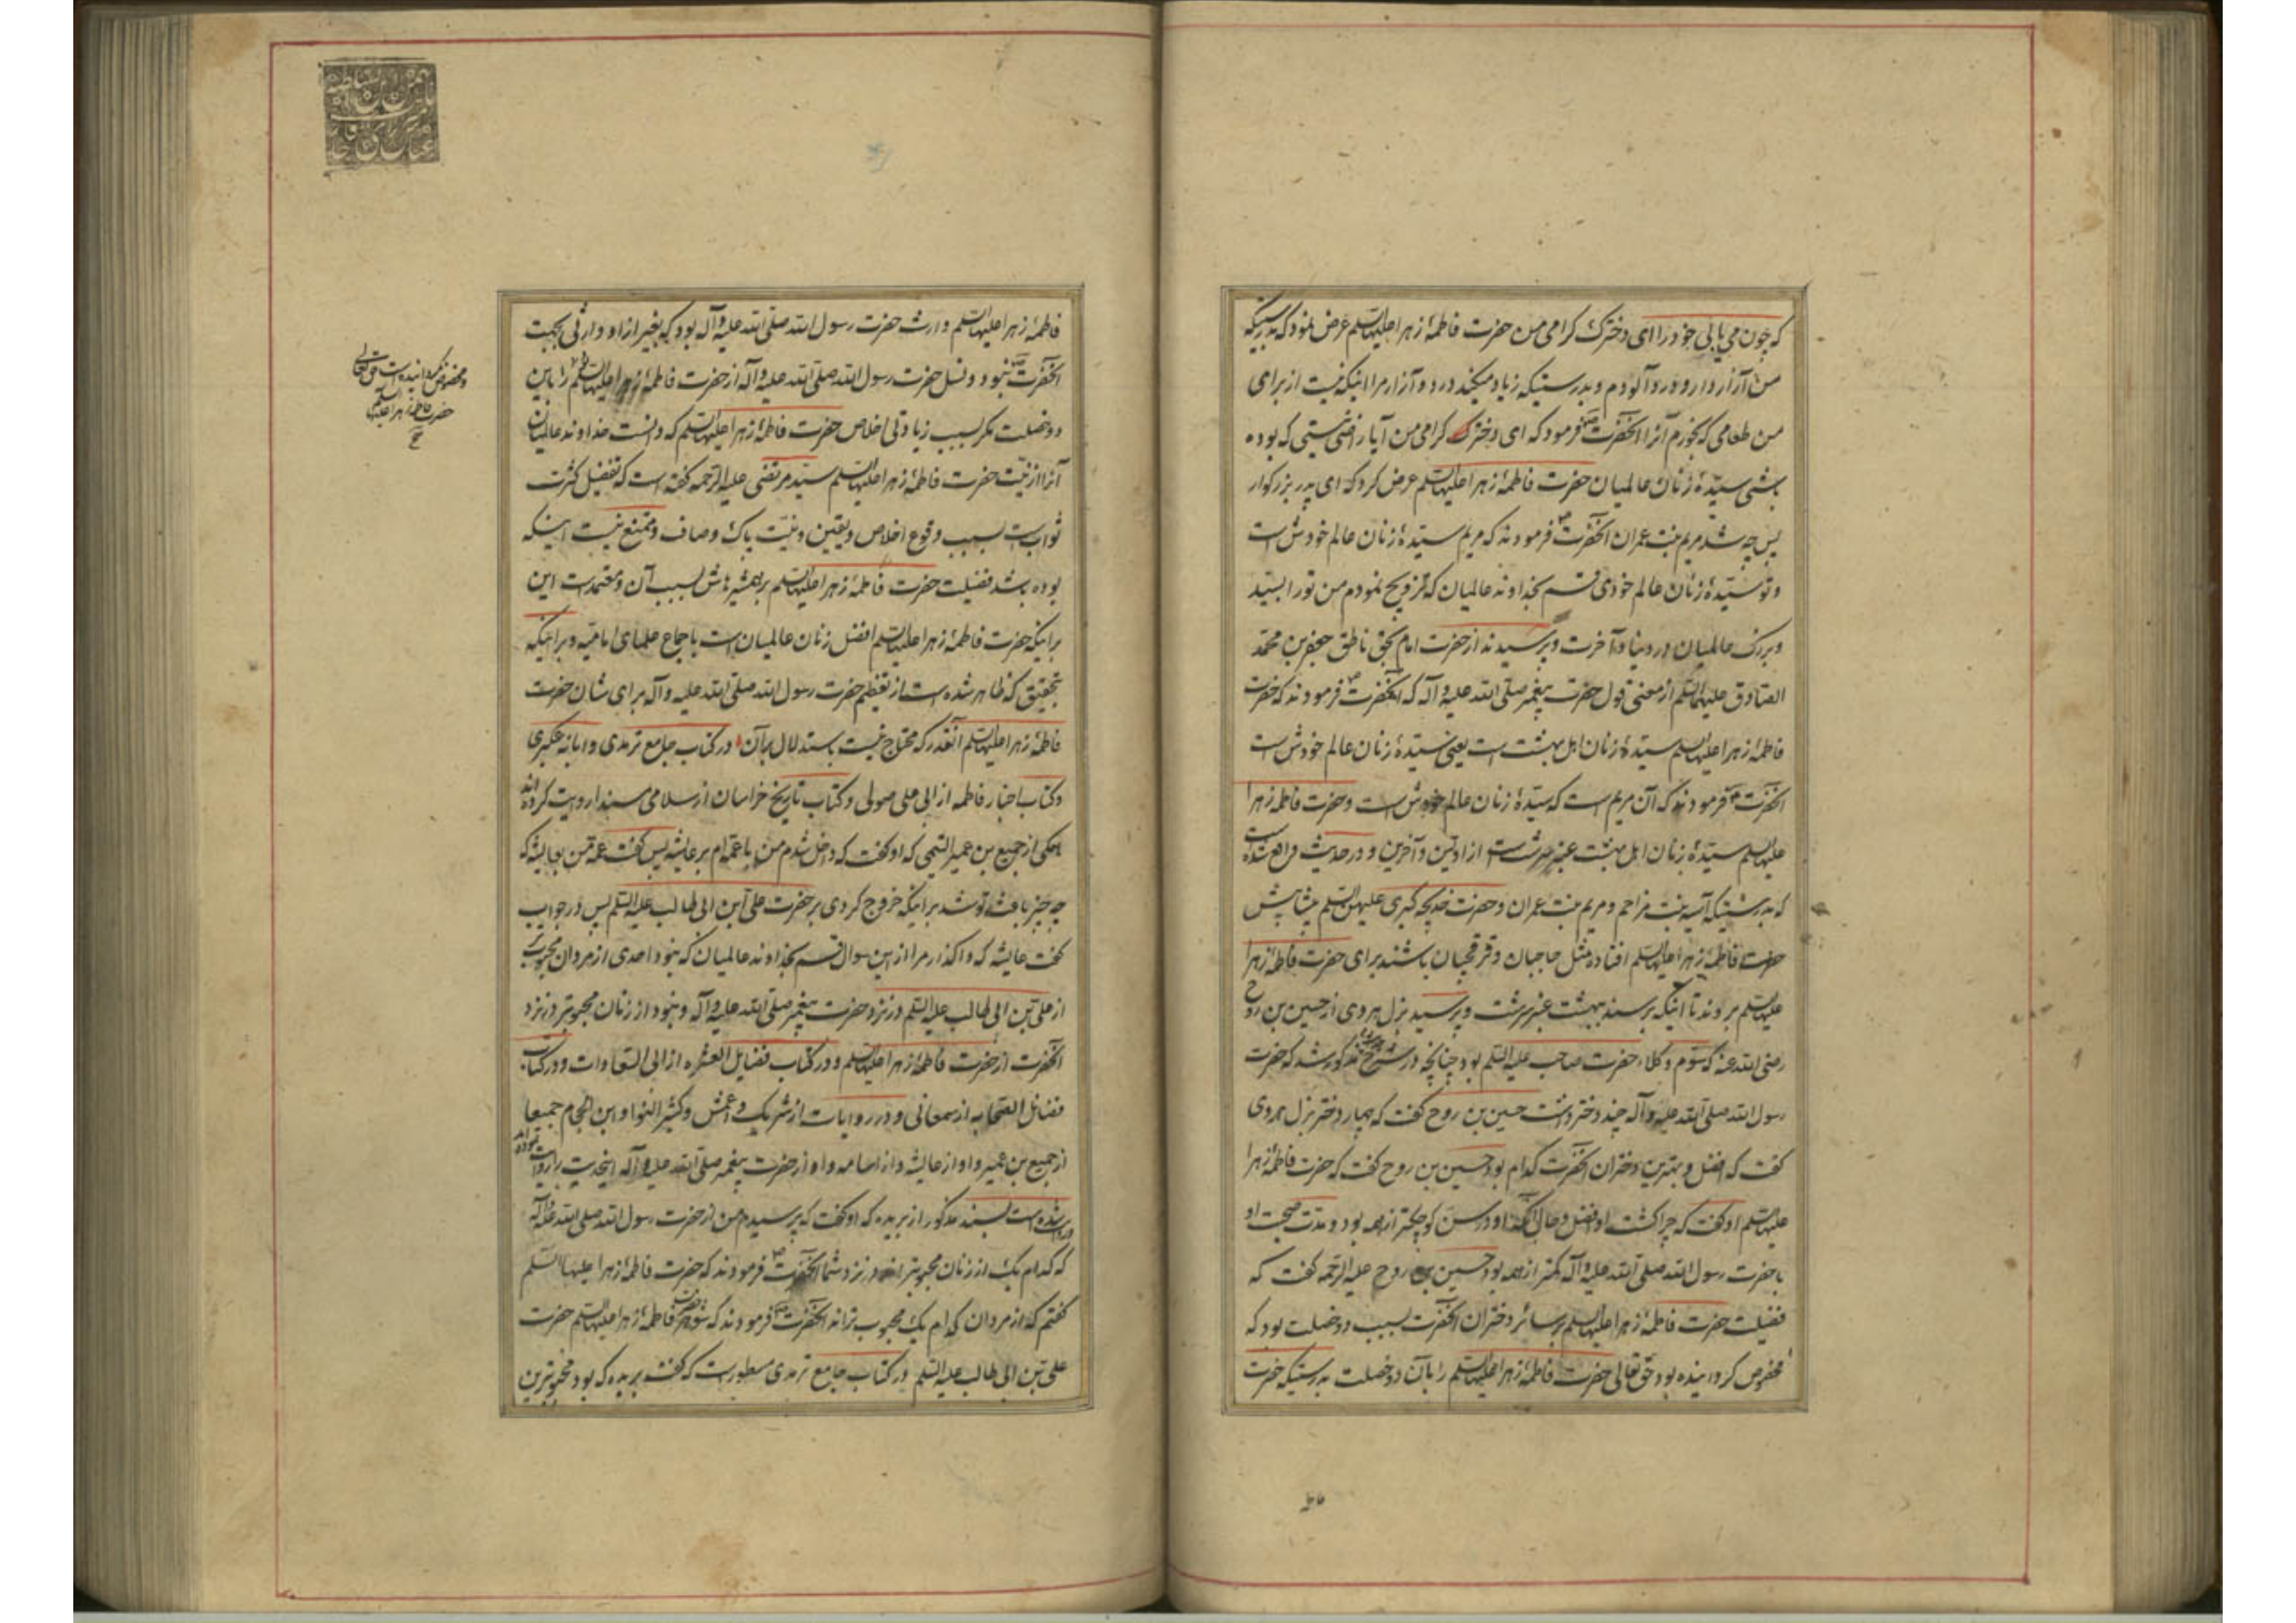 که چون می یابی خود را ای دخترک گرامی من حضرت فاطمهٔ زهرا علیها السلم عرض نمود که بدرستیکه
من آزار دارو درد آلودم و بدرستیکه زیاد میکند درد و آزار مرا اینکه نیست از برای
من طعامی که بخورم آنرا آنحضرت فرمود که ای دخترک گرامی من آیا راضی نیستی که بوده
باشی سیّدهٔ زنان عالمیان حضرت فاطمهٔ زهرا علیها السلم عرض کرد که ای پدر بزرکوار
پس چه شد مریم بنت عمران آنحضرت فرمودند که مریم سیّدهٔ زنان عالم خودش است
و تو سیّدهٔ زنان عالم خودی قسم بخداوند عالمیان که تزویج نمودم من تو را بسیّد
و بزرک عالمیان در دنیا و آخرت و پرسیدند از حضرت امام بحق ناطق جعفر بن محمّد
الصّادق علیهما السّلم از معنی قول حضرت پیغمبر صلّی الله علیه و آله که آنحضرت فرمودند که حضرت
فاطمهٔ زهرا علیها السلم سیّدهٔ زنان اهل بهشت است یعنی سیّدهٔ زنان عالم خودش است
آنحضرت فرمودند که آن مریم است که سیّدهٔ زنان عالم خودش است و حضرت فاطمهٔ زهرا
علیها السلم سیّدهٔ زنان اهل بهشت عنبر سرشت است از اولین و آخرین و در حدیث واقع شده است
که بدرستیکه آسیه بنت مزاحم و مریم بنت عمران و حضرت خدیجه کبری علیهن السّلم پیشاپیش
حضرت فاطمهٔ زهرا علیها السلم افتاده مثل حاجبان و قرقچیان باشند برای حضرت فاطمهٔ زهرا
علیها السلم بروند تا اینکه برسند ببهشت عنبر سرشت و پرسید بزل هروی از حسین بن روح
رضی الله عنه که سوم وکلاء حضرت صاحب علیه السّلم بود چنانچه در شرح مذکور شد که حضرت
رسول الله صلّی الله علیه و آله چند دختر داشت حسین بن روح گفت که چهار دختر بزل هروی
گفت که افضل و بهترین دختران آنحضرت کدام بود حسین بن روح گفت که حضرت فاطمهٔ زهرا
علیها السلم او گفت که چرا گشت او افضل و حال آنکه او در سن کوچکتر از همه بود و مدّت صحبت او
با حضرت رسول الله صلّی الله علیه و آله کمتر از همه بود حسین بن روح علیه الرّحمه گفت که
فضیلت حضرت فاطمهٔ زهرا علیها السلم بر سائر دختران آنحضرت بسبب دو خصلت بود که
مخصوص کردانیده بود حق تعالی حضرت فاطمهٔ زهرا علیها السلم را بآن دو خصلت بدرستیکه حضرت
فاطمهٔ زهرا علیها السلم وارث حضرت رسول الله صلّی الله علیه و آله بود که بغیر از او وارثی بجهت
آنحضرت نبود و نسل حضرت رسول الله صلّی الله علیه و آله از حضرت فاطمهٔ زهرا علیها السلم را باین
دو خصلت مگر بسبب زیادتی اخلاص حضرت فاطمهٔ زهرا علیها السلم که دانست خداوند عالمیان
آنرا از نیّت حضرت فاطمهٔ زهرا علیها السلم سیّد مرتضی علیه الرّحمه گفته است که تفضیل کثرت
ثواب است بسبب وقوع اخلاص و یقین و نیّت پاک و صاف و ممتنع نیست اینکه
بوده باشد فضیلت حضرت فاطمهٔ زهرا علیها السلم بر همشیرهاش بسبب آن و معتمد است این
بر اینکه حضرت فاطمهٔ زهرا علیها السلم افضل زنان عالمیان است باجماع علمای امامیّه و بر اینکه
بتحقیق که ظاهر شده است از تعظیم حضرت رسول الله صلّی الله علیه و آله برای شان حضرت
فاطمهٔ زهرا علیها السلم آنقدر که محتاج نیست باستدلال بر آن در کتاب جامع ترمذی و ابانه عکبری
و کتاب اخبار فاطمه از ابی علی صولی و کتاب تاریخ خراسان از سلامی مسندا روایت کرده اند
همکی از جمیع بن عمیر التیمی که او گفت که داخل شدم من با عمّه ام بر عایشه پس گفت عمّه من بعایشه که
چه چیز باعث تو شد بر اینکه خروج کردی بر حضرت علی ابن ابی طالب علیه السّلم پس در جواب
گفت عایشه که واگذار مرا از این سوال قسم بخداوند عالمیان که نبود احدی از مردان محبوبتر
از علی بن ابی طالب علیه السّلم در نزد حضرت پیغمبر صلّی الله علیه و آله و نبود از زنان محبوبتر در نزد
آنحضرت از حضرت فاطمهٔ زهرا علیها السلم و در کتاب فضایل العشره از ابی السّعادات و در کتاب
فضائل الصّحابه از سمعانی و در روایات از شریک و اعمش و کثیر النوا و ابن الحجام جمیعا
از جمیع بن عمیر و او از عایشه و از اسامه و او از حضرت پیغمبر صلّی الله علیه و آله اینحدیث را روایت نموده اند
روایت شده است بسند مذکور از بریده که او گفت که پرسیدم من از حضرت رسول الله صلّی الله علیه و آله
که کدام یک از زنان محبوبتر اند در نزد شما آنحضرت فرمودند که حضرت فاطمهٔ زهرا علیها السّلم
گفتم که از مردان کدام یک محبوب تراند آنحضرت فرمودند که شوهر حضرت فاطمهٔ زهرا علیها السلم حضرت
علی بن ابی طالب علیه السّلم در کتاب جامع ترمذی مسطور است که گفت بریده که بود محبوبترین
و مخصوص نکردانیده است حق تعالی
حضرت فاطمهٔ زهرا علیها السلم
صح
فاطمه